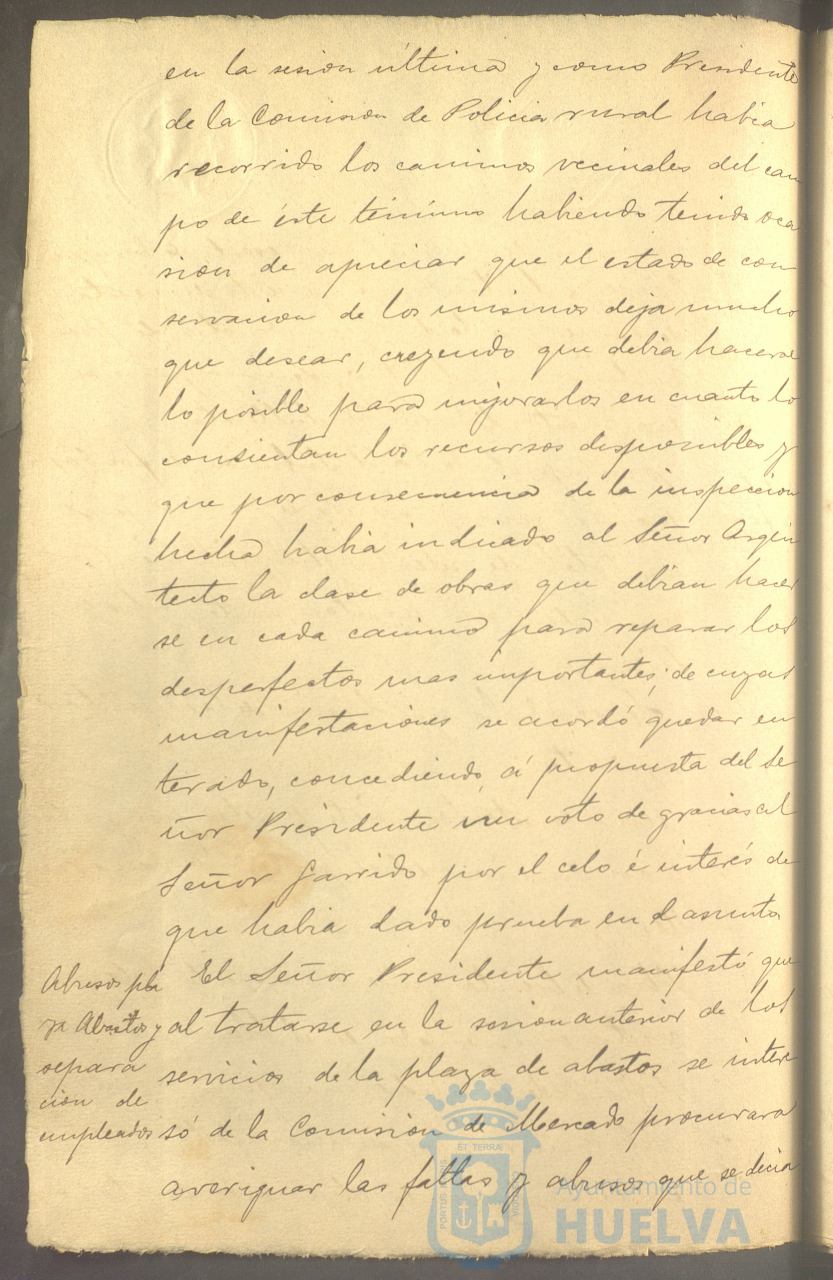 en la sesion última y como Presidente
de la Comision de Policia rural habia
recorrido los caminos vecinales del cam
po de éste término habiendo tenido oca
sion de apreciar que el estado de con
servacion de los mismos deja mucho
que desear, creyendo que debia hacerse
lo posible para mejorarlos en cuanto lo
consientan los recursos disponibles y
que por consecuencia de la inspeccion
hecha habia indicado al Señor Arqui
tecto la clase de obras que debian hacer
se en cada camino para reparar los
desperfectos mas importantes; de cuyas
manifestaciones se acordó quedar en
terado, concediendo, á propuesta del Se
ñor Presidente un voto de gracias al
Señor Garrido por el celo é interés de
que habia dado prueba en el asunto
Abusos pla
za Abastos y
separa
cion de
empleados
El Señor Presidente manifestó que
al tratarse en la sesion anterior de los
servicios de la plaza de abastos se intere
só de la Comision de Mercado procurara
averiguar las faltas y abusos que se decia
PORTUS MARIS
ET TERRÆ
CUSTODIA
Ayuntamiento de
HUELVA